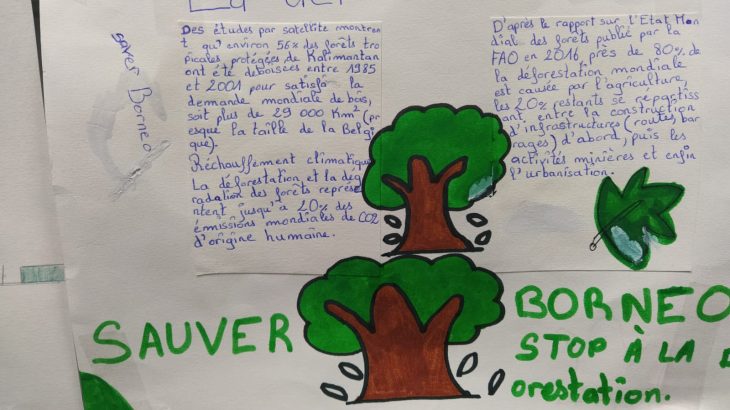 saver Borneo
Des études par satellite montren
t qu'environ 56% des forêts tro
picales protégées de Kalimantan
ont été déboisées entre 1985
et 2001 pour satisfa la
demande mondiale de bois,
soit plus de 29 000 Km² (pr
esque la taille de la Belgi
que).
Réchauffement climatique
La déforestation et la dég
radation des forêts représe
ntent jusqu'à 20% des
émissions mondiales de CO2
d'origine humaine.
D'après le rapport sur l'Etat Mon
dial des forêts publié par la
FAO en 2016, près de 80% de
la déforestation mondiale
est causée par l'agriculture,
les 20% restants se répartiss
ant entre la construction
d'infrastructures (routes, bar
rages) d'abord, puis les
activités minières et enfin
l'urbanisation.
SAUVER BORNEO
STOP À LA
orestation.